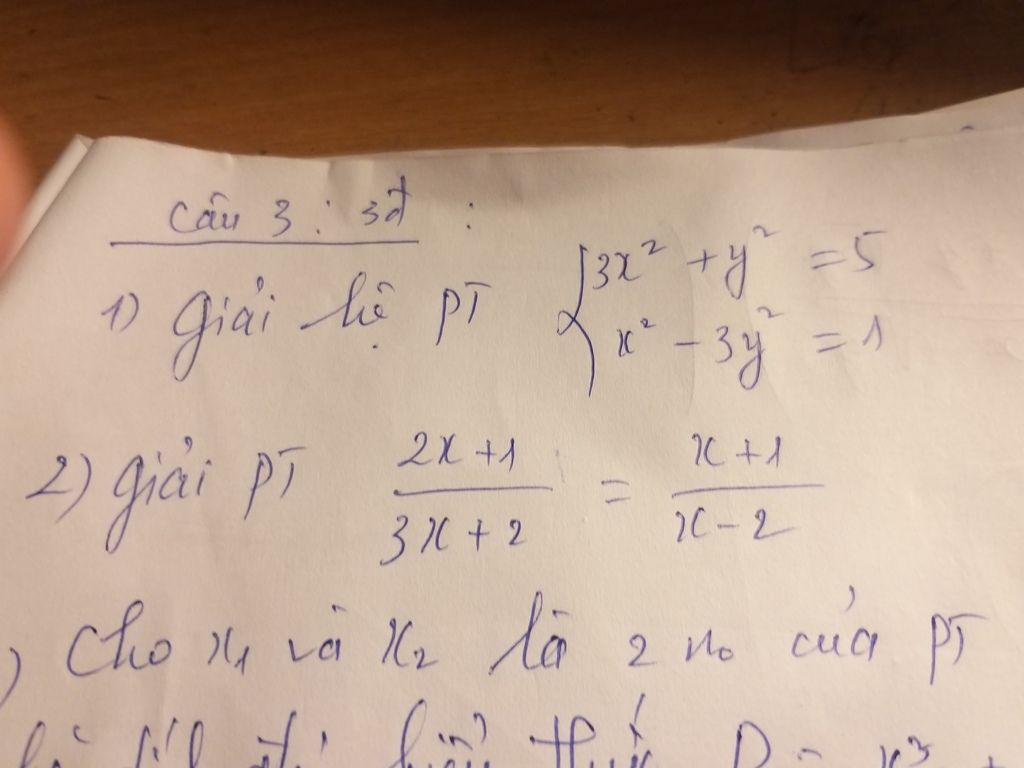 Câu 3 : 3đ :
1) Giải hệ PT { 3x² + y² = 5
x² - 3y² = 1
2) Giải PT (2x+1)/(3x+2) = (x+1)/(x-2)
) Cho x₁ và x₂ là 2 n₀ của PT
biểu thức